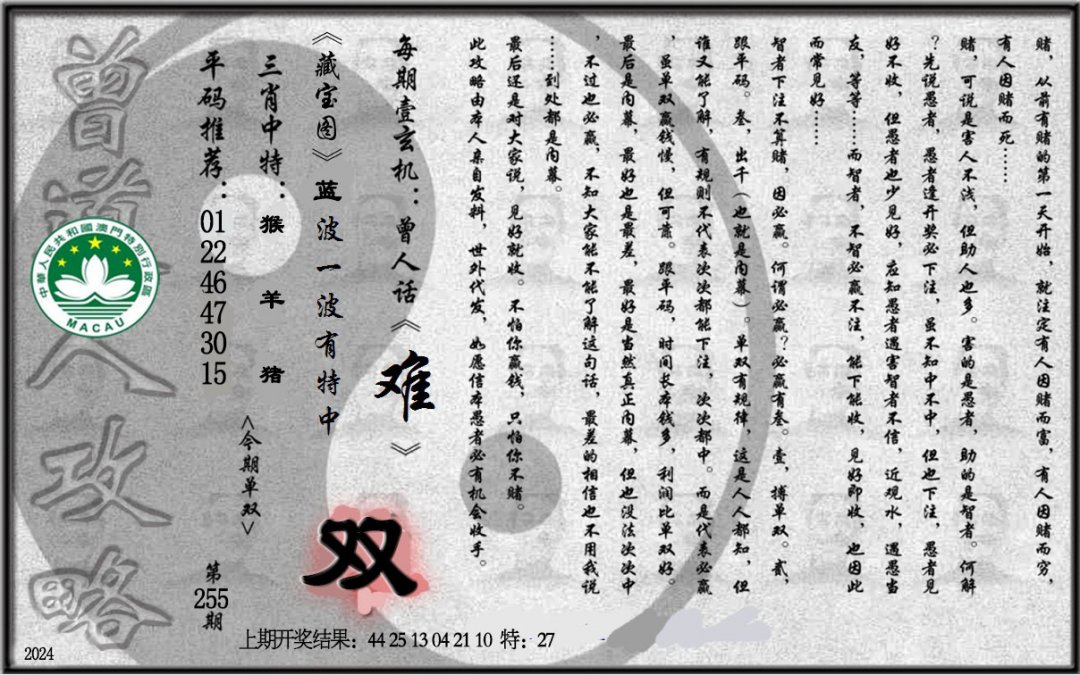 赌，从前有赌的第一天开始，就注定有人因赌而富，有人因赌而穷，
有人因赌而死……
赌，可说是害人不浅，但助人也多。害的是愚者，助的是智者。何解
？先说愚者，愚者逢开奖必下注，虽不知中不中，但也下注，愚者见
好不收，但愚者也少见好，应知愚者遇害智者不信，近观水，遇愚当
友，等等……而智者，不智必赢不注，能下能收，见好即收，也因此
而常见好……
智者下注不算赌，因必赢。何谓必赢？必赢有叁。壹，搏单双。贰，
跟平码。叁，出千（也就是内幕）。单双有规律，这是人人都知，但
谁又能了解，有规则不代表次次都能下注，次次都中。而是代表必赢
，虽单双赢钱慢，但可靠。跟平码，时间长本钱多，利润比单双好。
最后是内幕，最好也是最差，最好是当然真正内幕，但也没法次次中
，不过也必赢，不知大家能不能了解这句话，最差的相信也不用我说
……到处都是内幕。
最后还是对大家说，见好就收。不怕你赢钱，只怕你不赌。
此攻略由本人亲自发料，世外代发，如愿信本愚者必有机会收手。
每期壹玄机：曾人话《难》
《藏宝图》蓝波一波有特中
双
三肖中特：猴 羊 猪
<今期单双>
平码推荐：01 22 46 47 30 15
第255期
曾道人攻略
中華人民共和國澳門特別行政區
MACAU
上期开奖结果：44 25 13 04 21 10 特：27
2024